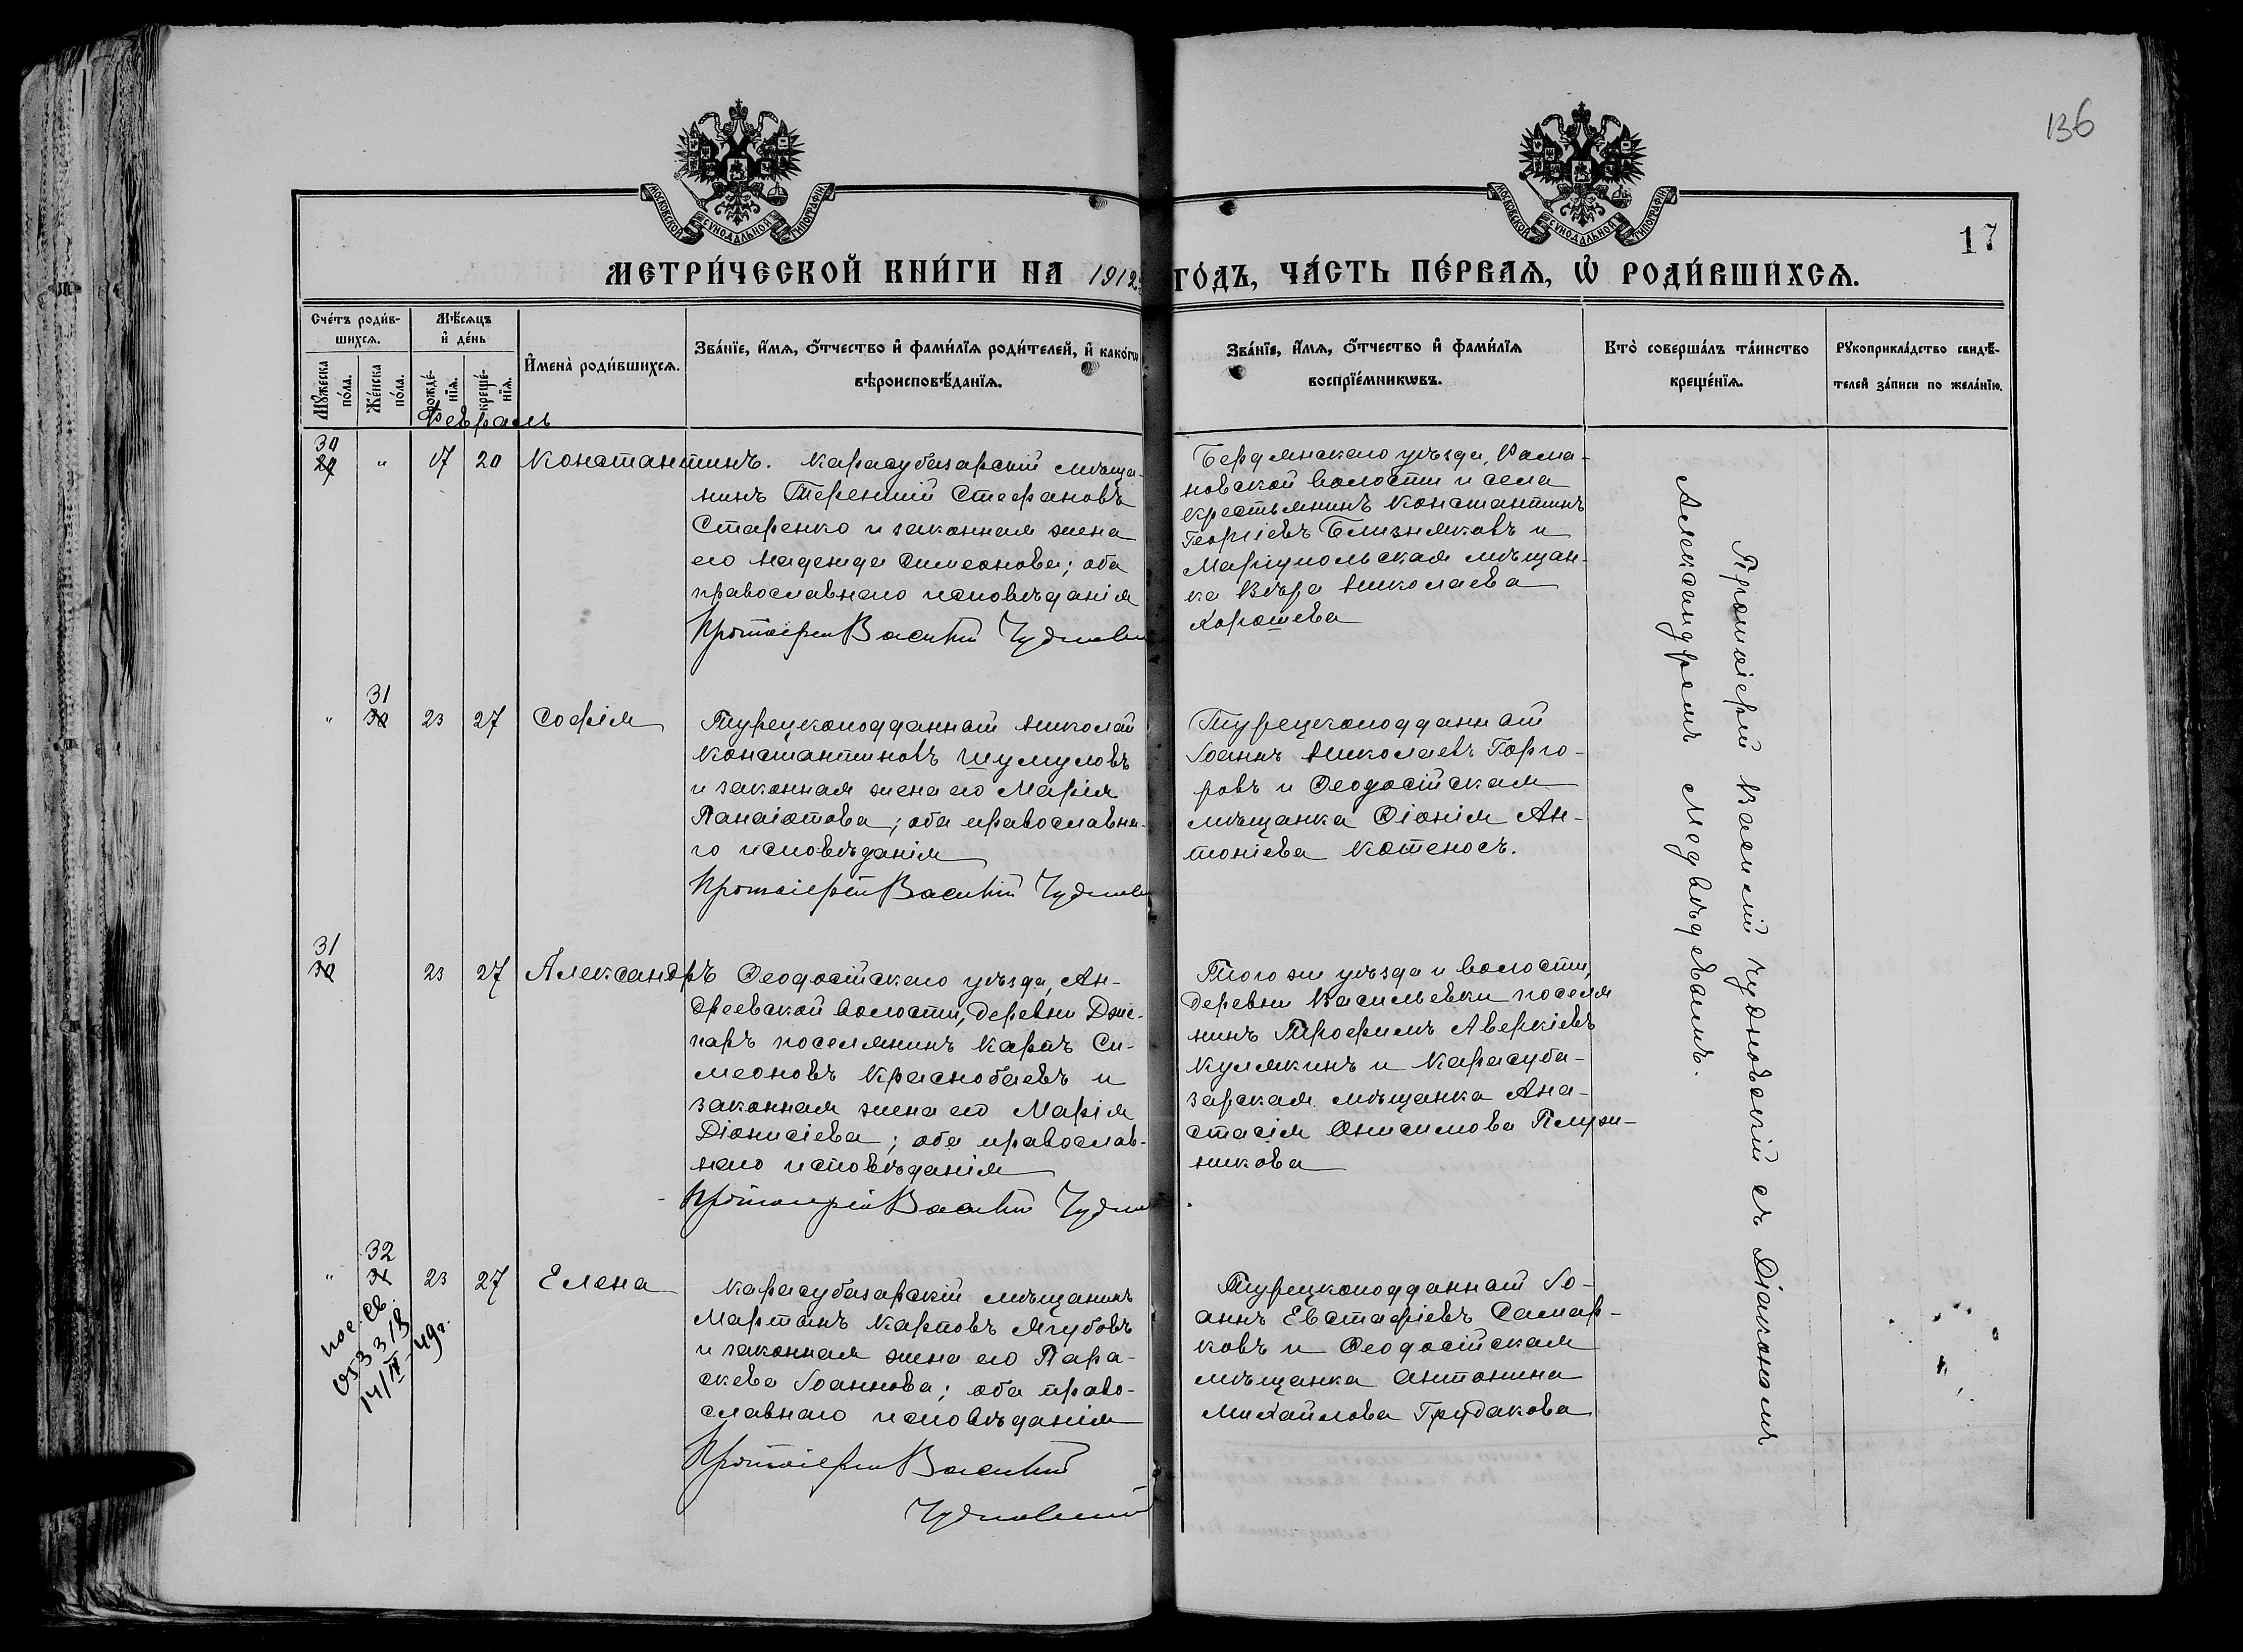 136
17
МОСКОВСКОЙ СѴНОДАЛЬНОЙ ТИПОГРАФІИ
МОСКОВСКОЙ СѴНОДАЛЬНОЙ ТИПОГРАФІИ
МЕТРИ́ЧЕСКОЙ КНИ́ГИ НА 1912
ГО́ДЪ, ЧА́СТЬ ПЕ́РВАѦ, Ѡ҆ РОДИ́ВШИХСѦ.
Сче́тъ роди́в-
шихсѧ.
Мꙋ́жеска
по́ла.
Же́нска
по́ла.
Мѣ́сѧцъ
и҆ де́нь
рожде́-
нїѧ.
креще́-
нїѧ.
И҆мена̀ роди́вшихсѧ.
Зва́нїе, и҆́мѧ, ѻ҆́тчество и҆ фами́лїѧ роди́телей, и҆ како́гѡ
вѣроисповѣ́данїѧ.
Зва́нїе, и҆́мѧ, ѻ҆́тчество и҆ фами́лїѧ
воспрїе́мникѡвъ.
Кто̀ соверша́лъ та́инство
креще́нїѧ.
Рꙋкоприкла́дство свидѣ́-
телей за́писи по жела́нїю.
Февраль
30
29
"
17
20
Константинъ.
Карасубазарскій мѣща-
нинъ Терентій Стефановъ
Старенко и законная жена
его Надежда Симеонова; оба
православнаго исповѣданія
Протоіерей Василій Чудновскій
Бердянскаго уѣзда, Рома-
новской волости и села
крестьянинъ Константинъ
Георгіевъ Близняковъ и
Маріупольская мѣщан-
ка Вѣра Николаева
Хорошева
"
31
30
23
27
Софія
Турецкоподданный Николай
Константиновъ Шумуловъ
и законная жена его Марія
Панаіотова; оба православна-
го исповѣданія
Протоіерей Василій Чудновскій
Турецкоподданный
Іоаннъ Николаевъ Горго-
ровъ и Ѳеодосійская
мѣщанка Ѳіонія Ан-
тоніева Котеносъ.
31
30
23
27
Александръ
Ѳеодосійскаго уѣзда, Ан-
дреевской волости, деревни Джа-
паръ поселянинъ Карпъ Си-
меоновъ Краснобаевъ и
законная жена его Марія
Діонисіева; оба православ-
наго исповѣданія
Протоіерей Василій Чудновскій
Того же уѣзда и волости,
деревни Васильевки поселя
нинъ Трофимъ Аверкіевъ
Кулякинъ и Карасуба-
зарская мѣщанка Ана-
стасія Онисимова Плуж-
никова
"
32
31
23
27
Елена
Карасубазарскій мѣщанинъ
Мартинъ Карповъ Ягубовъ
и законная жена его Пара-
скева Іоаннова; оба право-
славнаго исповѣданія
Протоіерей Василій
Чудновскій
Турецкоподданный Іо-
аннъ Евстафіевъ Самар-
ковъ и Ѳеодосійская
мѣщанка Антонина
Михайлова Грудакова
14/IV-49г.
Протоіерей Василій Чудновскій съ Діакономъ
Александромъ Медвѣдевымъ.